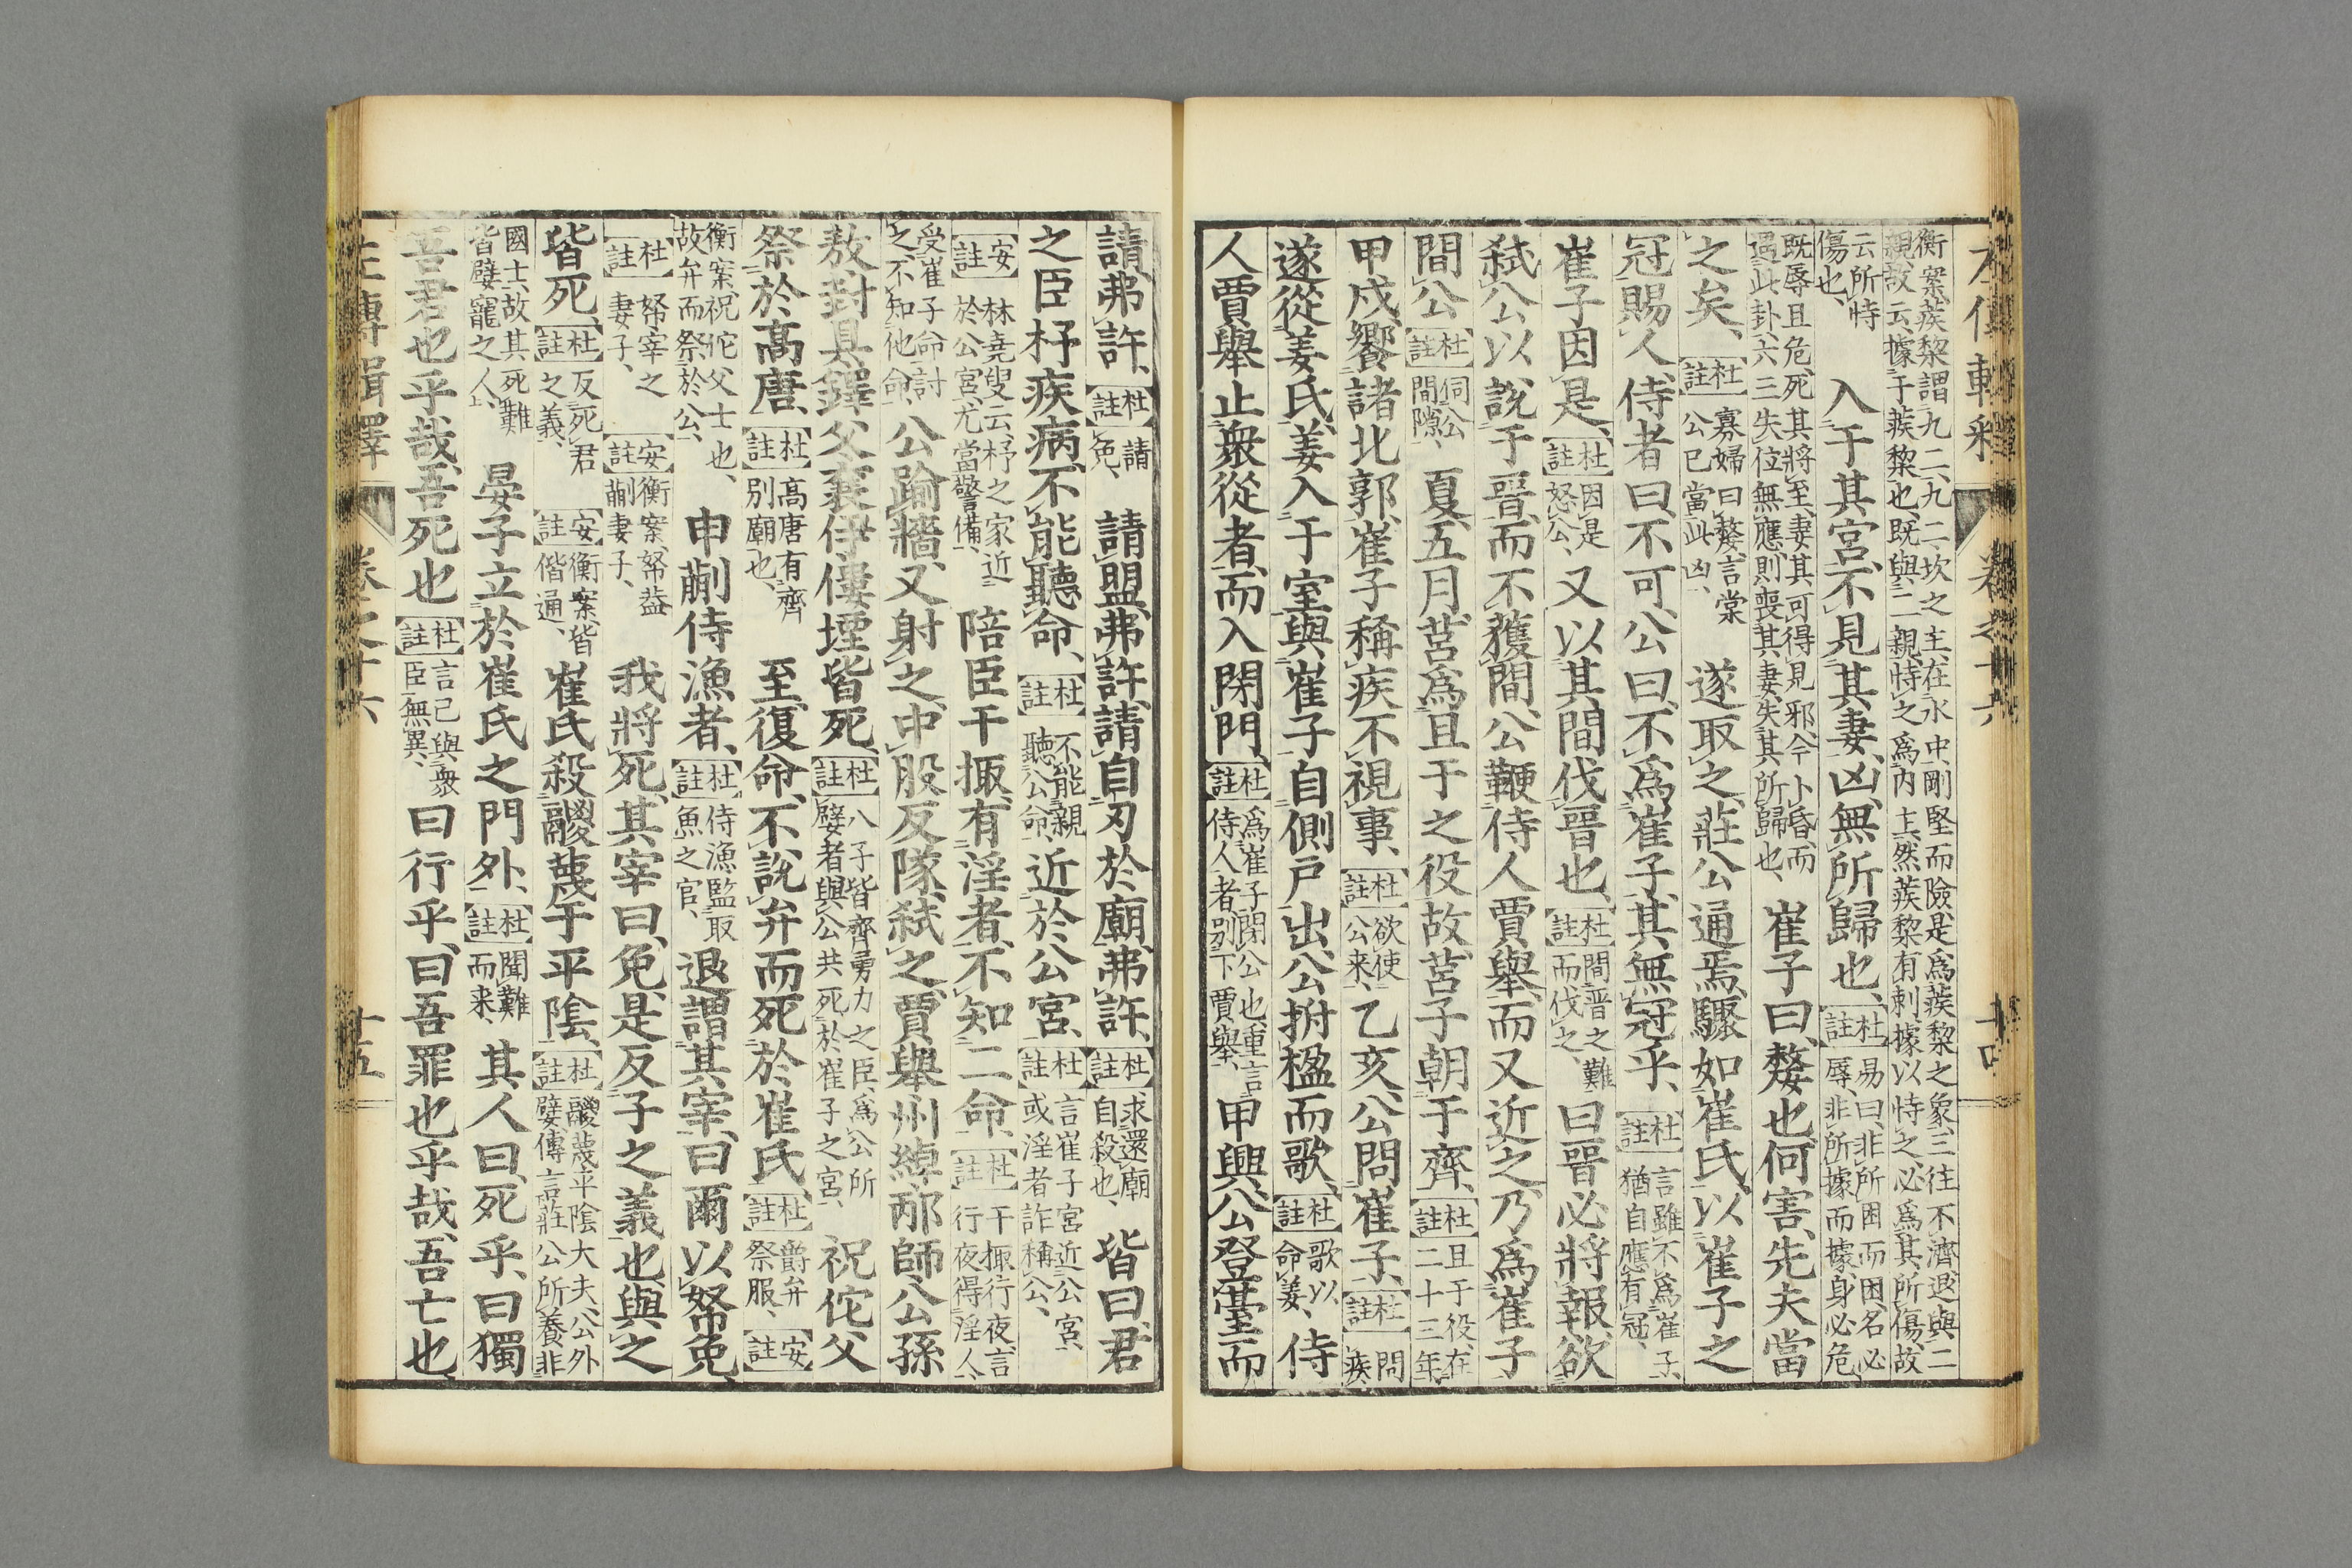 左傳輯釋 卷之十六 十四
衡案、蒺藜謂九二、九二坎之主、在水中、剛堅而險、是爲蒺藜之象、三往不濟、退與二親、故云據于蒺藜也、既與二親、恃之爲内主、然蒺藜有刺、據以恃之、必爲其所傷、故
云所恃傷也、入于其宮、不見其妻、凶、無所歸也、杜註易曰、非所困而困、名必辱、非所據而據、身必危、
既辱且危、死其將至、妻其可得見邪、今卜昏而遇此卦、六三失位無應、則喪其妻、失其所歸也、崔子曰、嫠也何害、先夫當
之矣、杜註寡婦曰嫠、言棠公已當此凶、遂取之、莊公通焉、驟如崔氏、以崔子之
冠賜人、侍者曰、不可、公曰、不爲崔子、其無冠乎、杜註言雖不爲崔子、猶自應有冠、
崔子因是、杜註因是怒公、又以其間伐晋也、杜註間晋之難而伐之、曰晋必將報、欲
弑公以說于晋、而不獲間、公鞭侍人賈擧、而又近之、乃爲崔子
間公、杜註伺公間隙、夏五月、莒爲且于之役故、莒子朝于齊、杜註且于役在二十三年
甲戌、饗諸北郭、崔子稱疾不視事、杜註欲使公来、乙亥、公問崔子、杜註問疾
遂從姜氏、姜入于室、與崔子自側戸出、公拊楹而歌、杜註歌以命姜、侍
人賈擧止衆從者而入、閉門、杜註爲崔子閉公也、重言侍人者、別下賈擧、甲興、公登臺而
請、弗許、杜註請免、請盟、弗許、請自刃於廟、弗許、杜註求還廟自殺也、皆曰、君
之臣杼疾病、不能聽命、杜註不能親聽公命、近於公宮、杜註言崔子宮近公宮、或淫者詐稱公、
安註林堯叟云、杼之家近於公宮、尤當警備、陪臣干掫、有淫者、不知二命、杜註干掫行夜、言行夜得淫人、
受崔子命討之、不知他命、公踰牆、又射之、中股反隊、弑之、賈擧、州綽、邴師、公孫
敖、封具、鐸父、襄伊、僂堙皆死、杜註八子皆齊勇力之臣、爲公所嬖者、與公共死於崔子之宮、祝佗父
祭於高唐、杜註高唐有齊別廟也、至復命、不說弁而死於崔氏、杜註爵弁祭服、安註
衡案、祝佗父士也、故弁而祭於公、申蒯侍漁者、杜註侍漁監取魚之官、退謂其宰曰、爾以帑免、
杜註帑宰之妻子、安註衡案、帑蓋蒯妻子、我將死、其宰曰、免、是反子之義也、與之
皆死、杜註反死君之義、安註衡案、皆偕通、崔氏殺鬷蔑于平陰、杜註鬷蔑平陰大夫、公外嬖、傳言莊公所養非
國士、故其死難皆嬖寵之人、晏子立於崔氏之門外、杜註聞難而来、其人曰、死乎、曰獨
吾君也乎哉、吾死也、杜註言己與衆臣無異、曰行乎、曰吾罪也乎哉、吾亡也、
左傳輯釋 卷之十六 十五